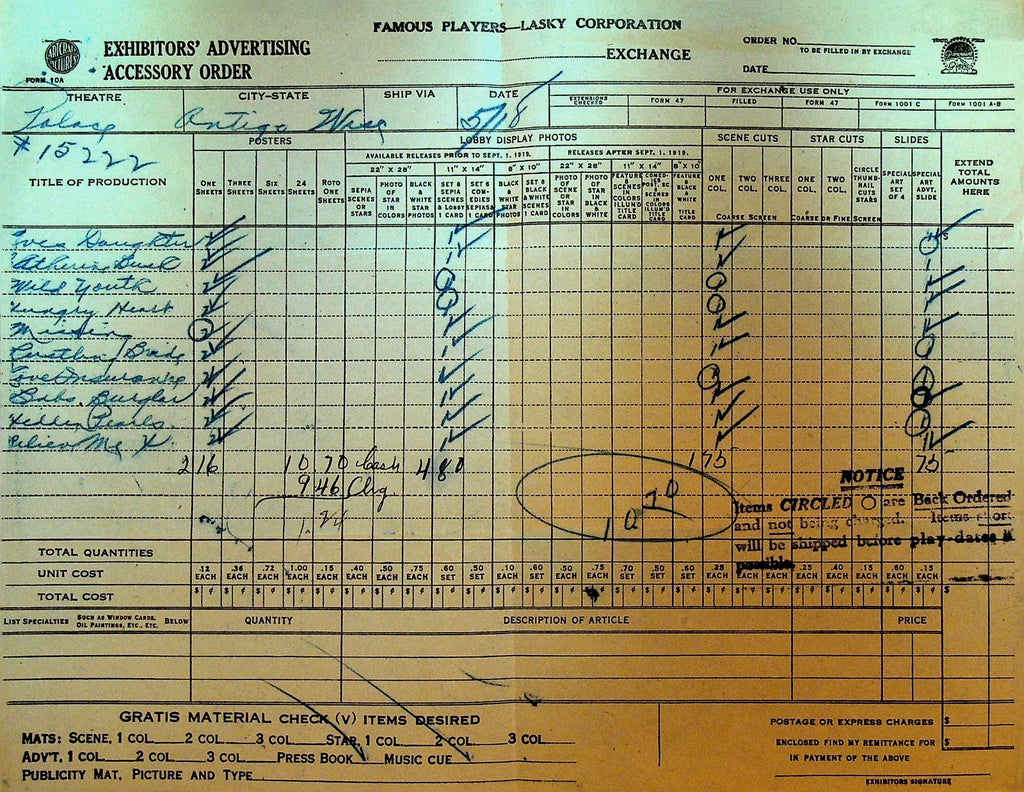 FAMOUS PLAYERS—LASKY CORPORATION
EXHIBITORS' ADVERTISING
ACCESSORY ORDER
FORM 10A
EXCHANGE
ORDER NO.
TO BE FILLED IN BY EXCHANGE
DATE
THEATRE CITY-STATE SHIP VIA DATE FOR EXCHANGE USE ONLY
EXTENSIONS CHECKED FORM 47 FILLED FORM 47 FORM 1001 C FORM 1001 A-B
Palace Antigo Wisc 5/18
# 15222
POSTERS LOBBY DISPLAY PHOTOS SCENE CUTS STAR CUTS SLIDES EXTEND TOTAL AMOUNTS HERE
AVAILABLE RELEASES PRIOR TO SEPT. 1, 1919. RELEASES AFTER SEPT. 1, 1919.
22" X 28" 11" X 14" 8" X 10" 22" X 28" 11" X 14" 8" X 10"
TITLE OF PRODUCTION
ONE SHEETS THREE SHEETS SIX SHEETS 24 SHEETS ROTO ONE SHEETS
SEPIA SCENES OR STARS PHOTO OF STAR IN COLORS BLACK & WHITE STAR PHOTOS SET 8 SEPIA SCENES & LOBBY 1 CARD SET 6 COMEDIES SEPIAS 1 CARD BLACK & WHITE STAR PHOTOS SET 8 BLACK & WHITE SCENES 1 CARD
PHOTO OF SCENE OR STAR IN COLORS PHOTO OF STAR IN BLACK & WHITE FEATURE 8 SCENES IN COLORS ILLUM'D TITLE CARD FEATURE BLACK & WHITE TITLE CARD
ONE COL. TWO COL. THREE COL. COARSE SCREEN
ONE COL. TWO COL. CIRCLE THUMBNAIL CUTS STARS COARSE OR FINE SCREEN
SPECIAL ART SET OF 4 SPECIAL ADVT. SLIDE
Eves Daughter 2
Wild Youth 2
Hungry Heart 2
Missing 2
Love Insurance 2
Babs Burglar 2
Hidden Pearls 2
Believe Me X. 2
216 10.70 Cash 480 175 75
9.46 Chg
1.24
10.70
NOTICE
Items CIRCLED O are Back Ordered
and not being charged. Items short
will be shipped before play-dates if
possible.
TOTAL QUANTITIES
UNIT COST .12 EACH .36 EACH .72 EACH 1.00 EACH .15 EACH .40 EACH .50 EACH .75 EACH .60 SET .50 SET .10 EACH .60 SET .50 EACH .75 EACH .70 SET .50 SET .60 SET .25 EACH EACH EACH .25 EACH .40 EACH .15 EACH .60 EACH .15 EACH
TOTAL COST
LIST SPECIALTIES SUCH AS WINDOW CARDS, OIL PAINTINGS, ETC., ETC. BELOW QUANTITY DESCRIPTION OF ARTICLE PRICE
GRATIS MATERIAL CHECK (V) ITEMS DESIRED
MATS: SCENE, 1 COL. 2 COL. 3 COL. STAR, 1 COL. 2 COL. 3 COL.
ADV'T, 1 COL. 2 COL. 3 COL. PRESS BOOK MUSIC CUE
PUBLICITY MAT, PICTURE AND TYPE
POSTAGE OR EXPRESS CHARGES $
ENCLOSED FIND MY REMITTANCE FOR $
IN PAYMENT OF THE ABOVE
EXHIBITORS SIGNATURE